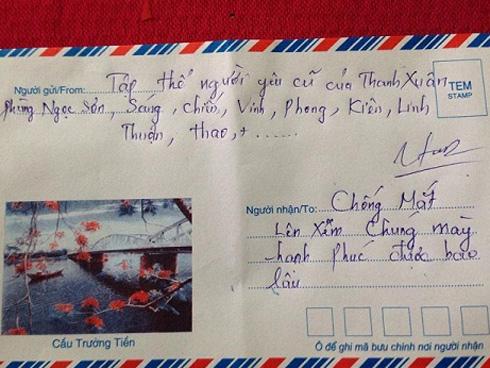 Người gửi/From: Tập thể người yêu cũ của Thanh Xuân
Phùng Ngọc Sơn, Sang, Chiến, Vinh, Phong, Kiên, Linh
Thuận, thao, + ......
TEM
STAMP
Người nhận/To: Chống Mắt
Lên Xẫm Chúng mày
hạnh phúc được bao
lâu
Cầu Trường Tiền
Ô để ghi mã bưu chính nơi người nhận